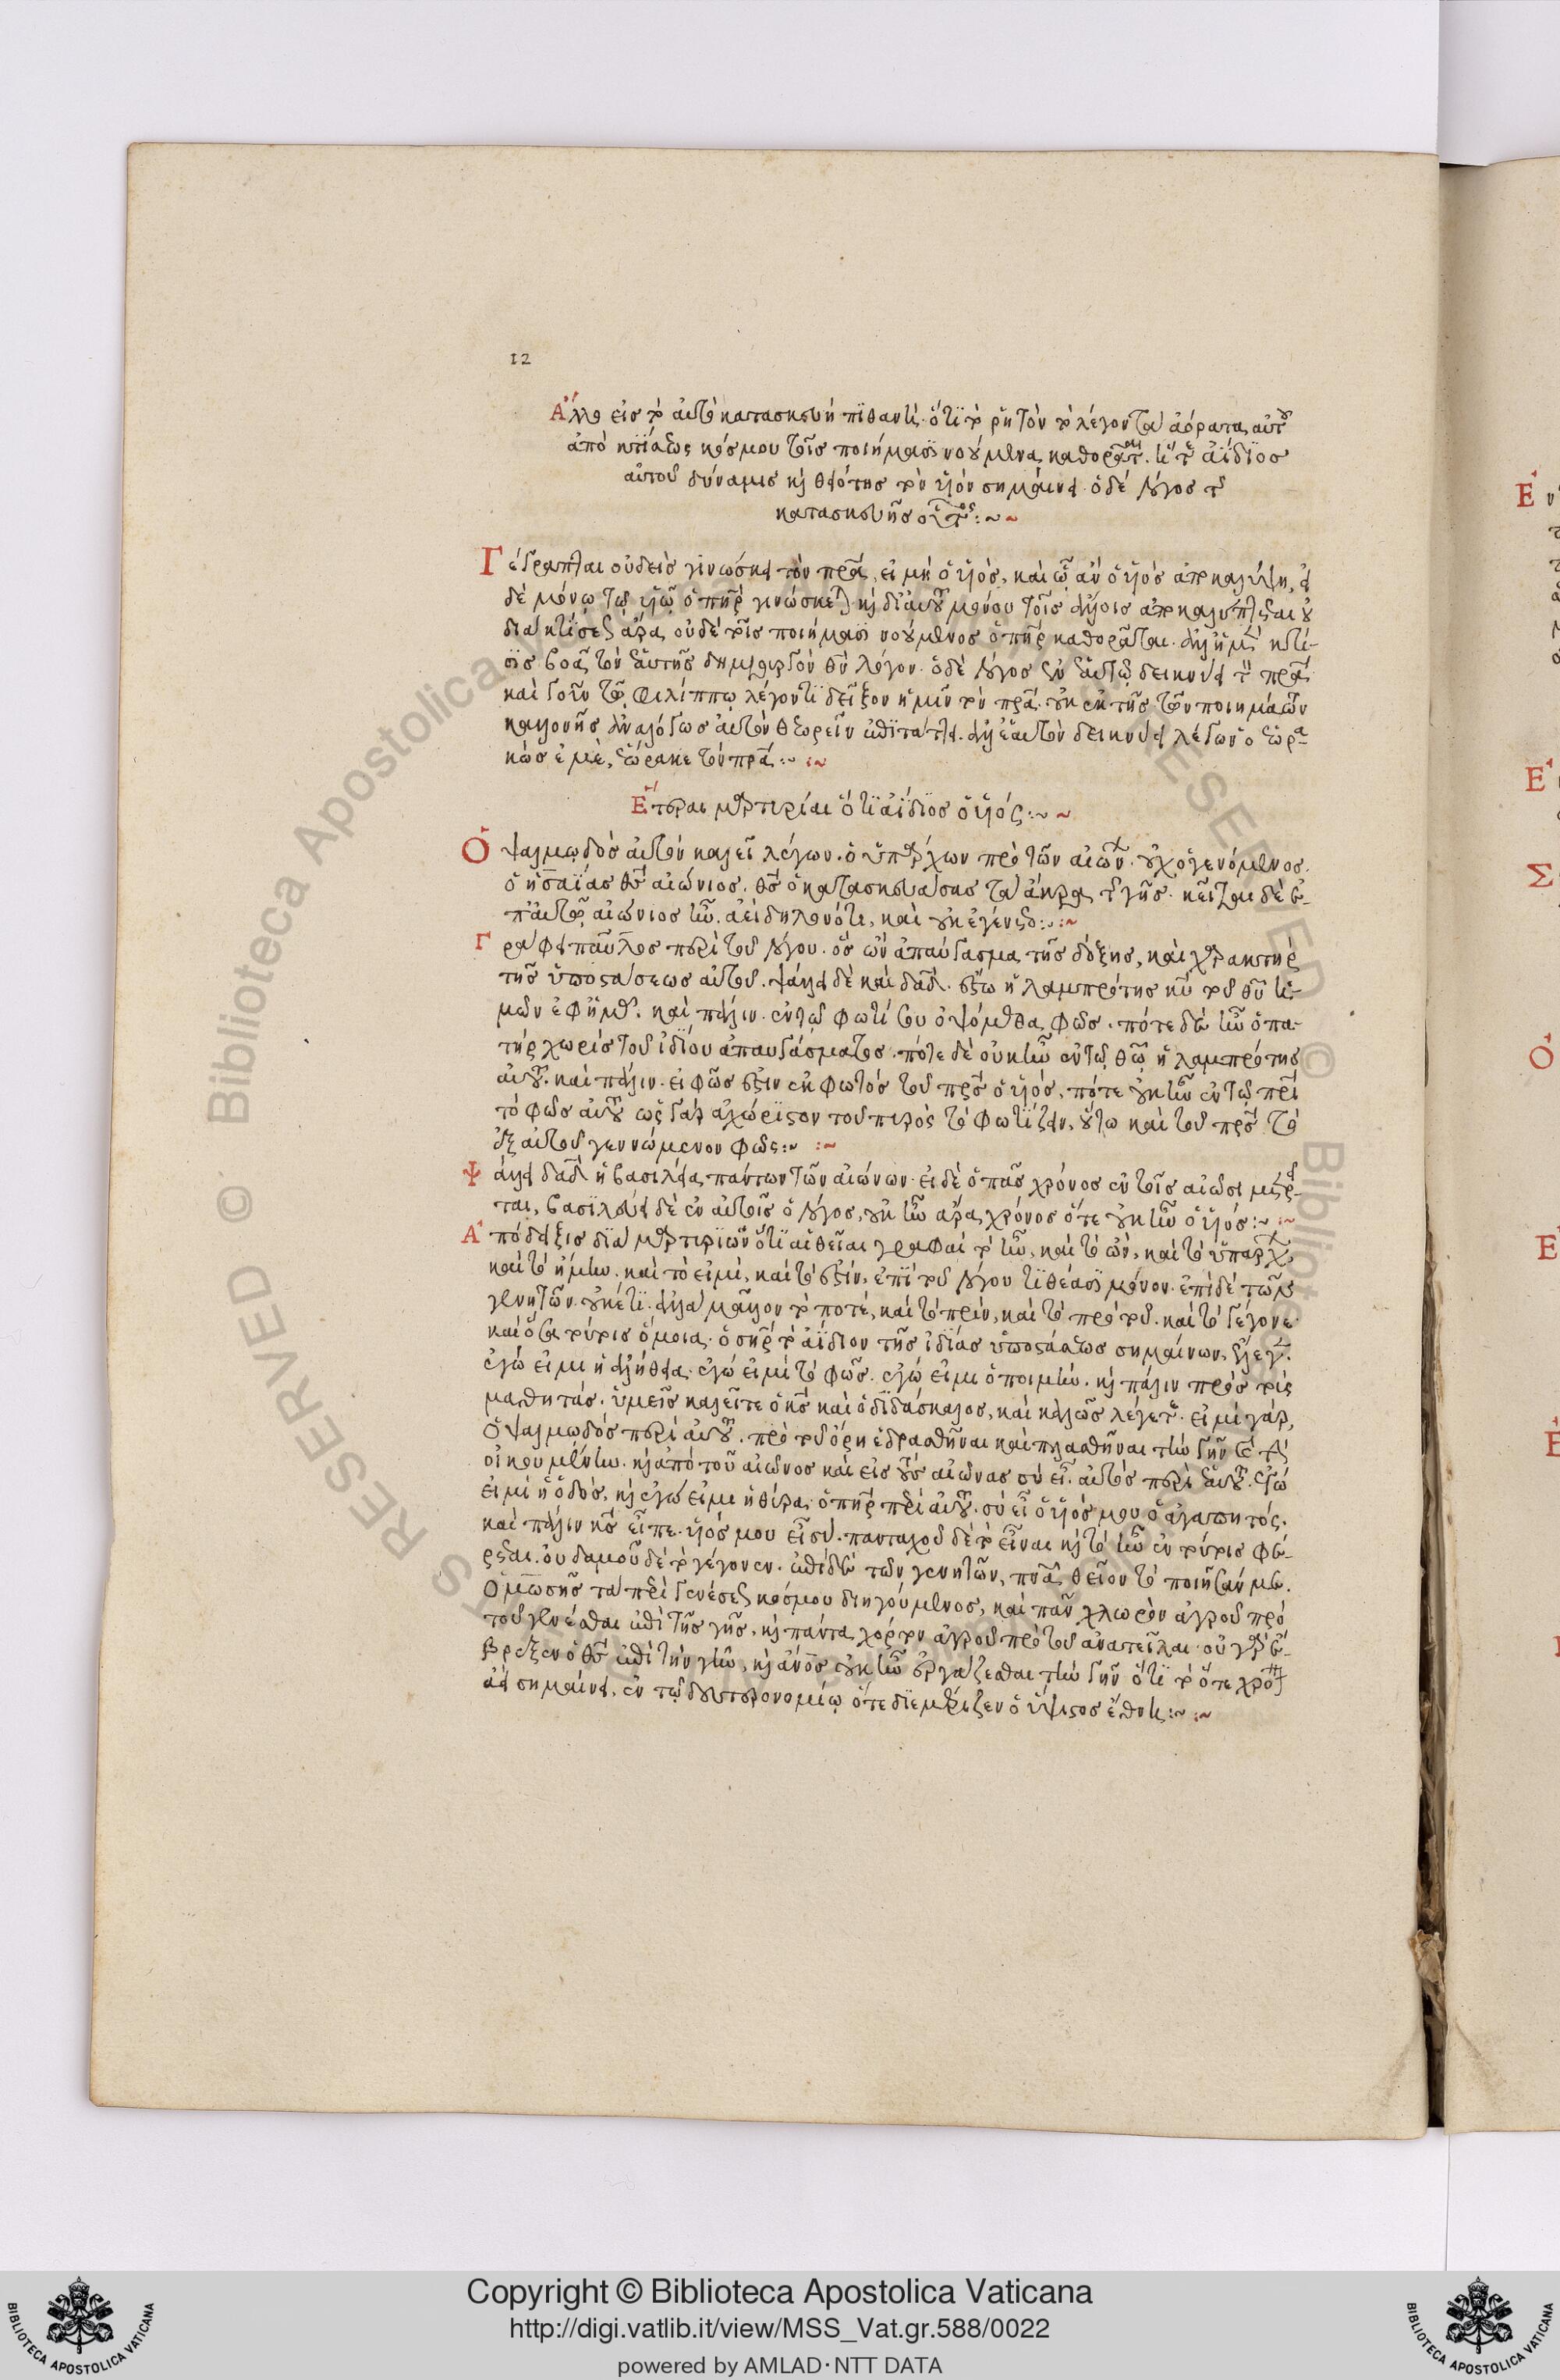 12
Ἄλλο εἰς τὸ αὐτὸ κατασκευὴ πιθανή· ὅτι τὸ ῥητὸν τὸ λέγον τὰ ἀόρατα αὐτοῦ
ἀπὸ κτίσεως κόσμου τοῖς ποιήμασι νοούμενα καθορᾶται. ἥ τε ἀΐδιος
αὐτοῦ δύναμις καὶ θειότης τὸν υἱὸν σημαίνει· ὁ δὲ λόγος τῆς
κατασκευῆς οὗτος:~~
Γέγραπται οὐδεὶς γινώσκει τὸν πρα, εἰ μὴ ὁ υἱὸς, καὶ ᾧ ἂν ὁ υἱὸς ἀποκαλύψῃ, εἰ
δὲ μόνῳ τῷ υἱῷ ὁ πηρ γινώσκεται καὶ δι' αὐτοῦ μόνου τοῖς ἄλλοις ἀποκαλύπτεται οὐ
διὰ κτίσεως ἄρα οὐδὲ τοῖς ποιήμασι νοούμενος ὁ πηρ καθορᾶται. ἀλλ' ἡ μὲν κτί-
σις βοᾷ τὸν ἑαυτῆς δημιουργὸν θῦ λόγον· ὁ δὲ λόγος ἐν ἑαυτῷ δεικνύει τὸν πρα
καὶ γοῦν τῷ Φιλίππῳ λέγοντι δεῖξον ἡμῖν τὸν πρα· οὐκ ἐκ τῆς τῶν ποιημάτων
καλλονῆς ἀναλόγως αὐτὸν θεωρεῖν ἐπιτάττει. ἀλλ' ἑαυτὸν δεικνύει λέγων ὁ ἑωρα-
κὼς ἐμὲ, ἑώρακε τὸν πρα:~ :~
Ἕτεραι μαρτυρίαι ὅτι ἀΐδιος ὁ υἱός:~~
Ὁ ψαλμῳδὸς αὐτὸν καλεῖ λέγων· ὁ ὑπάρχων πρὸ τῶν αἰώνων· οὐχ ὁ γενόμενος.
ὁ ἠσαΐας θς αἰώνιος. θς ὁ κατασκευάσας τὰ ἄκρα τῆς γῆς·
π' αὐτῷ αἰώνιος ἦν. ἀεὶ δηλονότι, καὶ οὐκ ἐγένετο:~:~
Γράφει παῦλος περὶ τοῦ λόγου· ὃς ὢν ἀπαύγασμα τῆς δόξης, καὶ χαρακτὴρ
τῆς ὑποστάσεως αὐτοῦ. ψάλλει δὲ καὶ δαδ· ἔστω ἡ λαμπρότης κυ τοῦ θυ ἡ-
μῶν ἐφ' ἡμᾶς. καὶ πάλιν· ἐν τῷ φωτί σου ὀψόμεθα φῶς. πότε δὲ ἦν ὁ πα-
τὴρ χωρὶς τοῦ ἰδίου ἀπαυγάσματος. πότε δὲ οὐκ ἦν ἐν τῷ θῷ ἡ λαμπρότης
αὐτοῦ. καὶ πάλιν· εἰ φῶς ἐστιν ἐκ φωτὸς τοῦ πρς ὁ υἱὸς, πότε οὐκ ἦν ἐν τῷ πρι
τὸ φῶς αὐτοῦ ὡς γὰρ ἀχώριστον τοῦ πυρὸς τὸ φωτίζειν, οὕτω καὶ τοῦ πρς τὸ
ἐξ αὐτοῦ γεννώμενον φῶς:~ :~
Ψάλλει δαδ ἡ βασιλεία πάντων τῶν αἰώνων· εἰ δὲ ὁ πᾶς χρόνος ἐν τοῖς αἰῶσι μετρεῖ-
ται, βασιλεύει δὲ ἐν αὐτοῖς ὁ λόγος, οὐκ ἦν ἄρα χρόνος ὅτε οὐκ ἦν ὁ υἱός:~:~
Ἀπόδειξις διὰ μαρτυριῶν ὅτι αἱ θεῖαι γραφαὶ τὸ ἦν, καὶ τὸ ὢν, καὶ τὸ ὑπάρχων
καὶ τὸ ἤμην. καὶ τὸ εἰμὶ, καὶ τὸ ἐστίν, ἐπὶ τοῦ λόγου τιθέασι μόνον· ἐπὶ δὲ τῶν
γενητῶν οὐκέτι. ἀλλὰ μᾶλλον τὸ ποτέ, καὶ τὸ πρίν, καὶ τὸ πρὸ τοῦ. καὶ τὸ γέγονε
καὶ ὅσα τούτοις ὅμοια· ὁ σηρ τὸ ἀΐδιον τῆς ἰδίας ὑποστάσεως σημαίνων, ἔλεγεν.
ἐγώ εἰμι ἡ ἀλήθεια· ἐγώ εἰμι τὸ φῶς. ἐγώ εἰμι ὁ ποιμήν. καὶ πάλιν πρὸς τοὺς
μαθητάς. ὑμεῖς καλεῖτε ὁ κς καὶ ὁ διδάσκαλος, καὶ καλῶς λέγετε. εἰμὶ γάρ,
ὁ ψαλμῳδὸς περὶ αὐτοῦ. πρὸ τοῦ ὄρη ἑδρασθῆναι καὶ πλασθῆναι τὴν γῆν καὶ τὴν
οἰκουμένην. καὶ ἀπὸ τοῦ αἰῶνος καὶ εἰς τοὺς αἰῶνας σὺ εἶ. αὐτὸς περὶ ἑαυτοῦ. ἐγώ
εἰμι ἡ ὁδὸς, καὶ ἐγώ εἰμι ἡ θύρα, ὁ πηρ περὶ αὐτοῦ· σὺ εἶ ὁ υἱός μου ὁ ἀγαπητός.
καὶ πάλιν κς εἶπε· υἱός μου εἶ σύ. πανταχοῦ δὲ τὸ εἶναι καὶ τὸ ἦν ἐν τούτοις φέ-
ρεται. οὐδαμοῦ δὲ τὸ γέγονεν. ἐπὶ δὲ τῶν γενητῶν, πνα θεῖον τὸ ποιῆσάν με.
Ὁ μωσῆς τὰ περὶ γενέσεως κόσμου διηγούμενος, καὶ πᾶν χλωρὸν ἀγροῦ πρὸ
τοῦ γενέσθαι ἐπὶ τῆς γῆς, καὶ πάντα χόρτον ἀγροῦ πρὸ τοῦ ἀνατεῖλαι· οὐ γὰρ ἔ-
βρεξεν ὁ θς ἐπὶ τὴν γῆν, καὶ ἄνος οὐκ ἦν ἐργάζεσθαι τὴν γῆν ὅτι τὸ ὅτε
σημαίνει. ἐν τῷ δευτερονομίῳ ὅτε διεμέριζεν ὁ ὕψιστος ἔθνη:~ :~
Ε
Ε
Ο
Σ
Ο
Ε
Ε
Copyright © Biblioteca Apostolica Vaticana
http://digi.vatlib.it/view/MSS_Vat.gr.588/0022
powered by AMLAD·NTT DATA
BIBLIOTECA APOSTOLICA VATICANA
BIBLIOTECA APOSTOLICA VATICANA